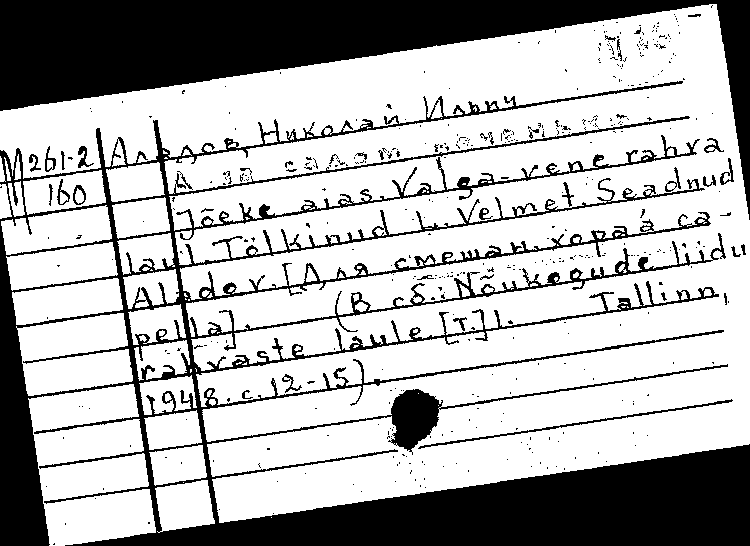 М261-2
160
Аладов, Николай Ильич
А за садом реченька.
Jõeke aias. Valga-vene rahva
laul. Tõlkinud L. Velmet. Seadnud
Alador. [Для смешан. хора а са-
pella]. (В сб.: Nõukogude liidu
rahvaste laule. [т.] I. Tallinn,
1948. с. 12-15).